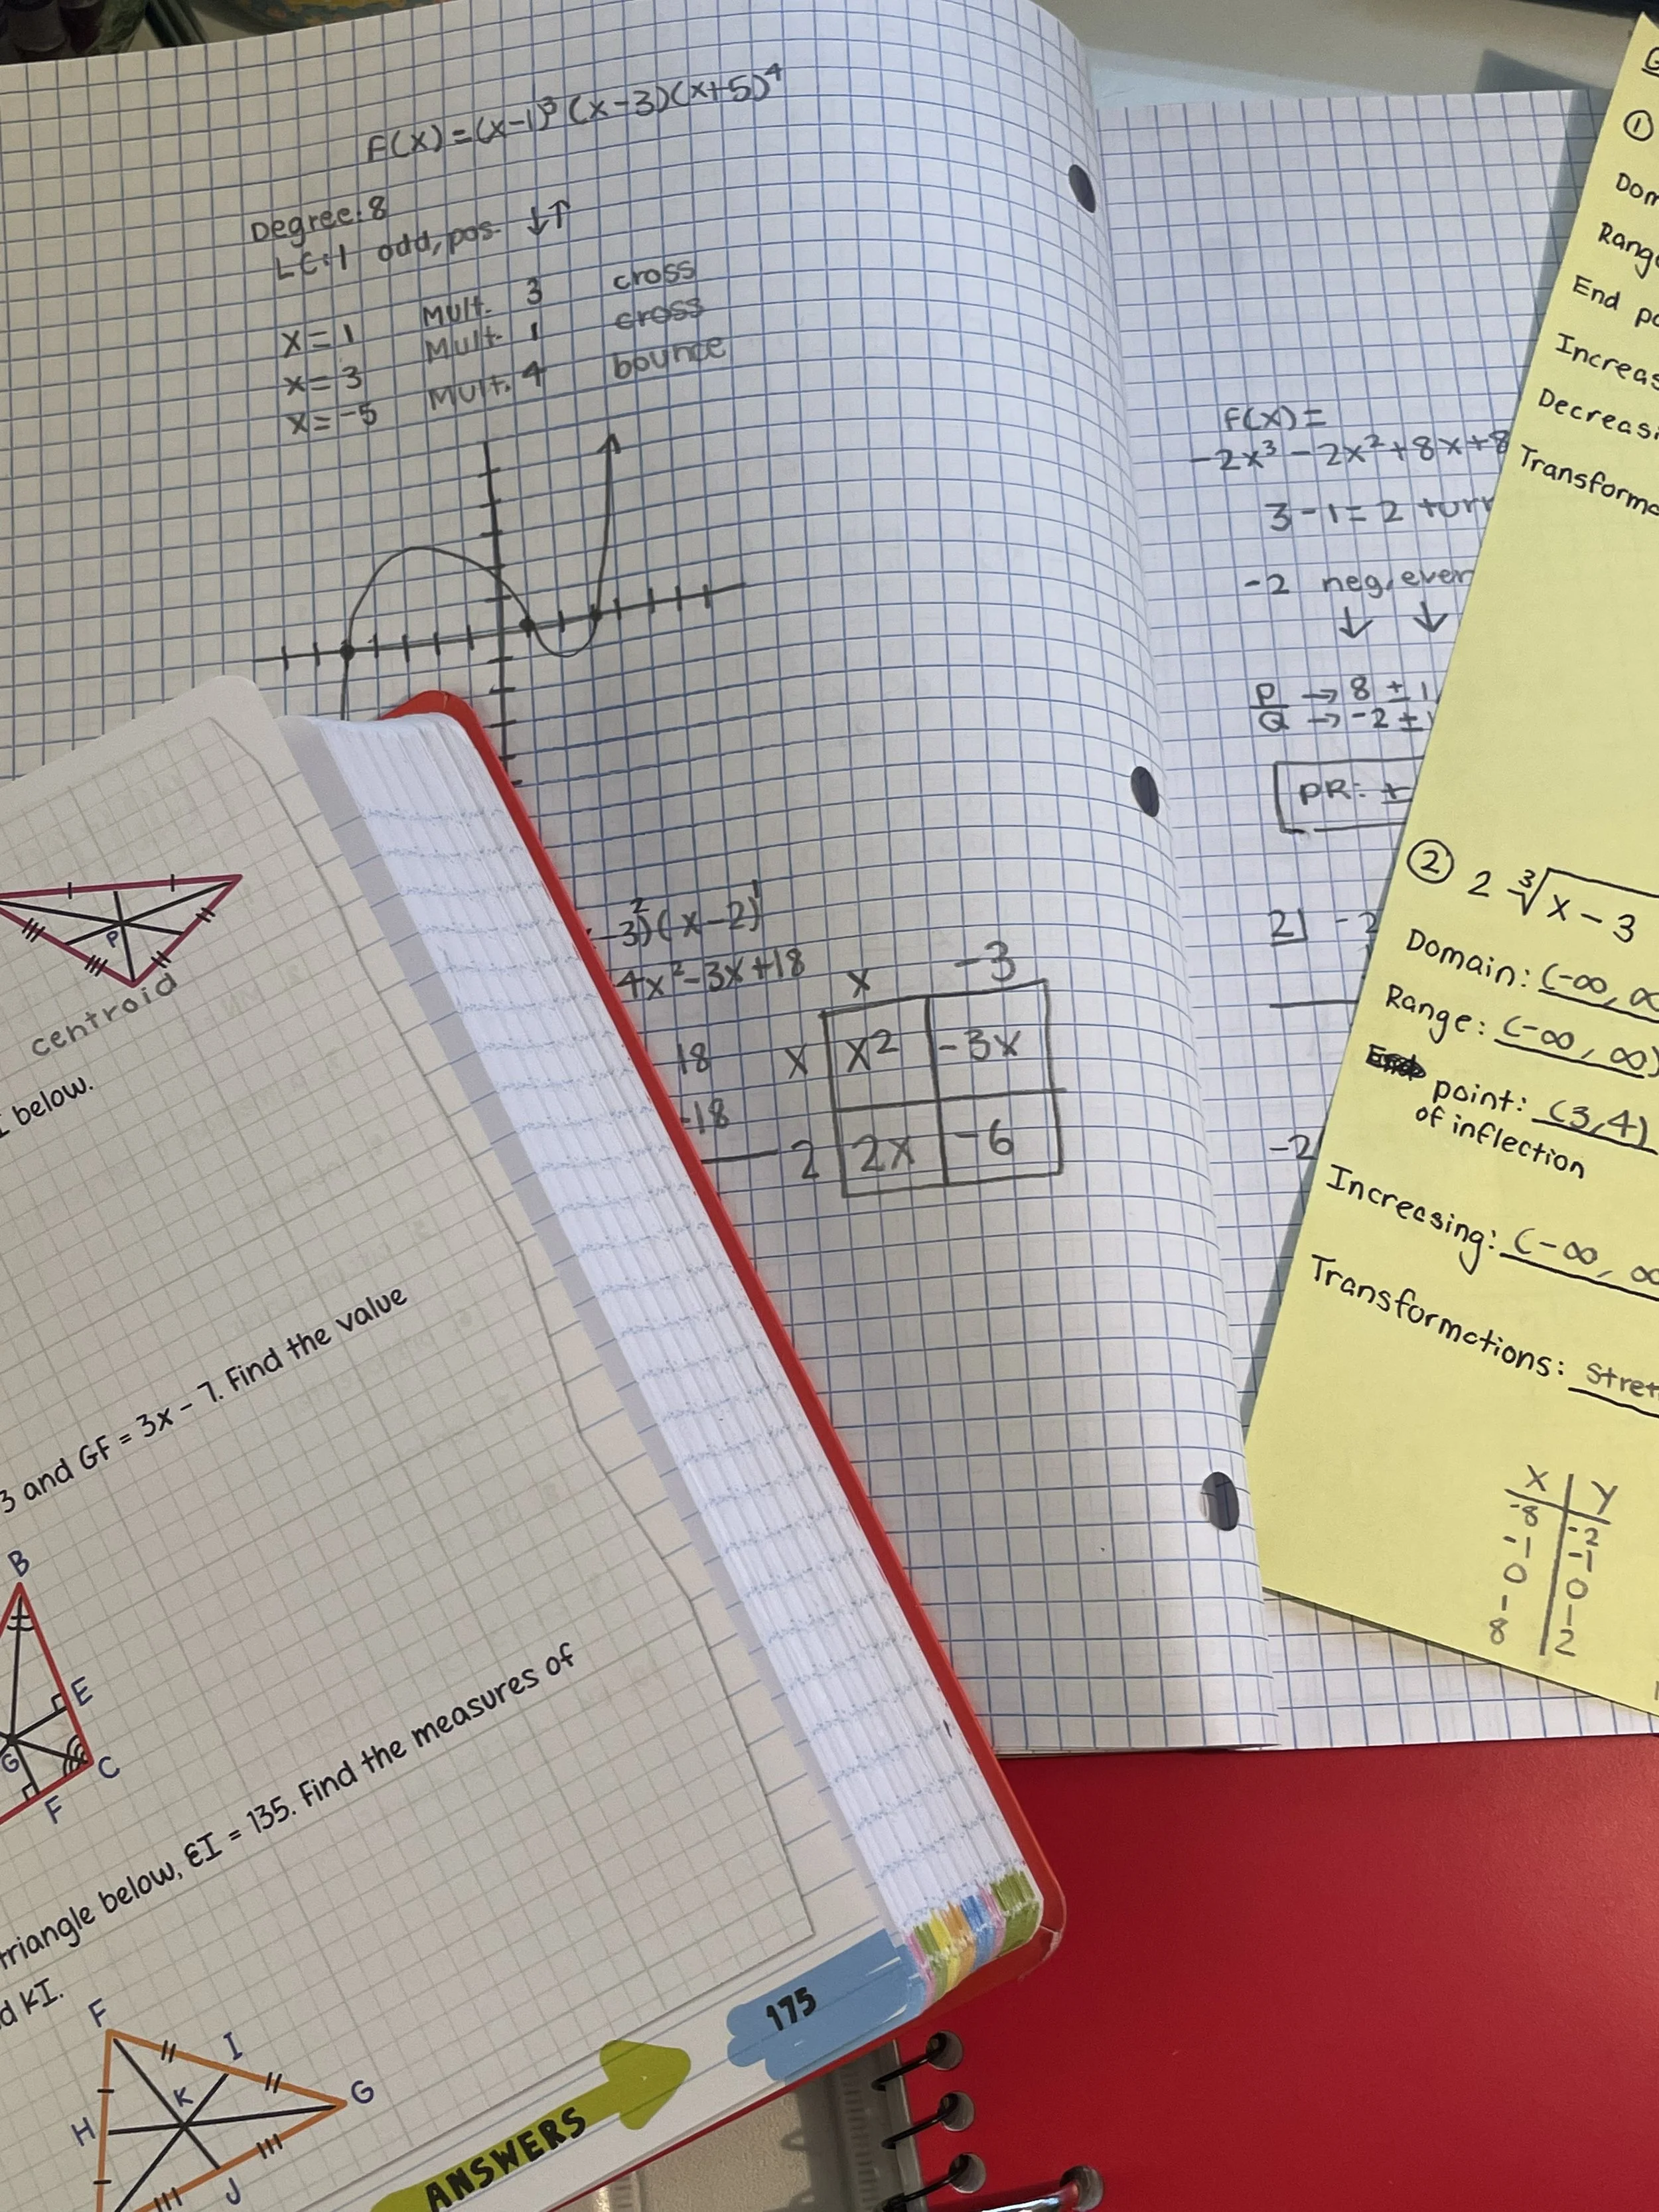 F(x) = (x-1)³ (x-3)(x+5)⁴
Degree: 8
LC: 1 odd, pos. ↓↑
x = 1 Mult. 3 cross
x = 3 Mult. 1 cross
x = -5 Mult. 4 bounce
3)² (x-2)¹
4x² - 3x + 18
18
-18
x -3
x x² -3x
2 2x -6
F(x) =
-2x³ - 2x² + 8x + 8
3 - 1 = 2
-2 neg, even
↓ ↓
P → 8 ± 1
Q → -2 ±
PR: ±
2| -2
-2|
①
End
② 2 ∛x - 3
Domain: (-∞, ∞
Range: (-∞, ∞)
point: (3,4)
of inflection
Increasing: (-∞, ∞
Transformations:
X Y
-8 -2
-1 -1
0 0
1 1
8 2
P
centroid
below.
3 and GF = 3x - 7. Find the value
B
E
G
C
F
triangle below, EI = 135. Find the measures of
KI.
F
I
K
G
H
J
ANSWERS
175